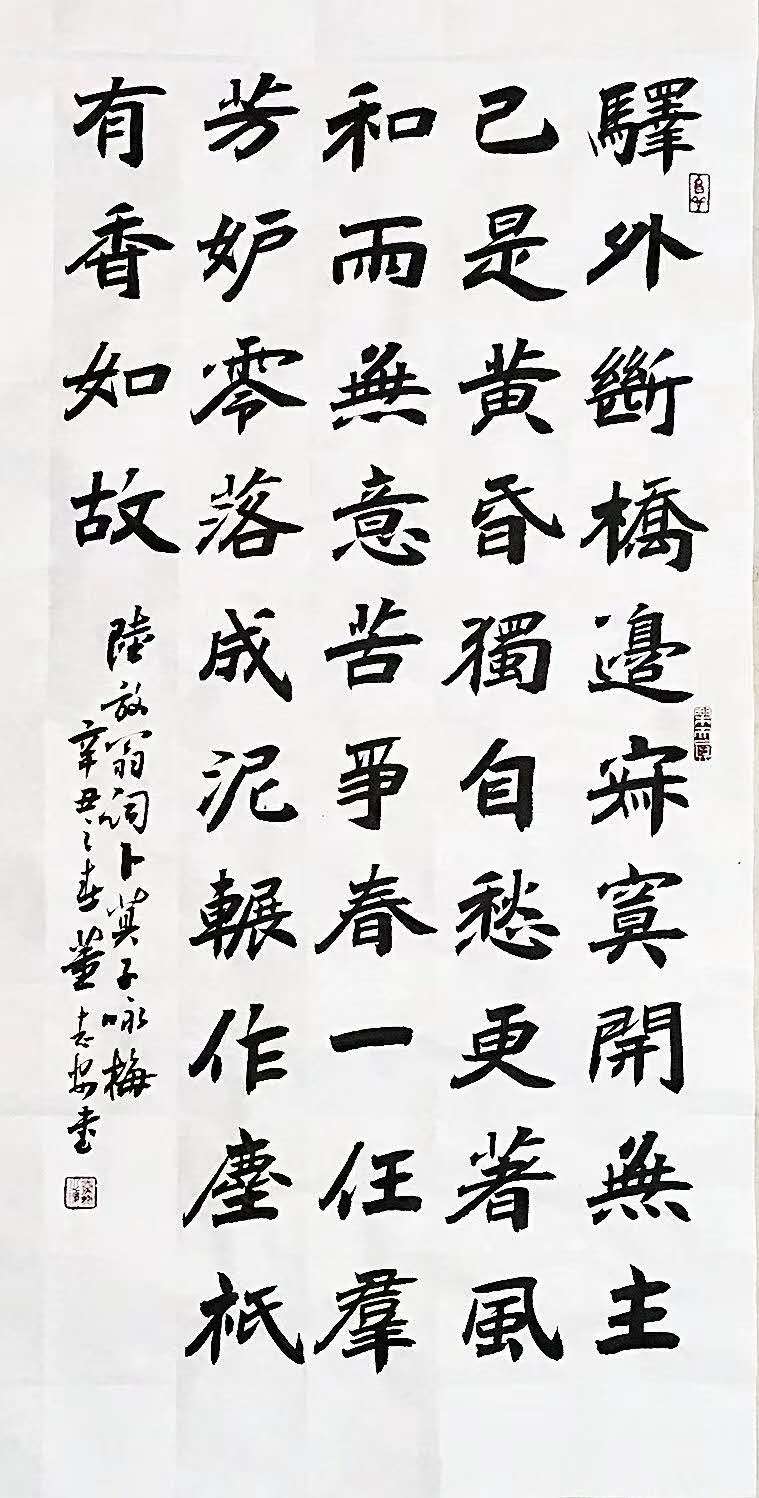 驛外斷橋邊寂寞開無主
已是黄昏獨自愁更著風
和雨無意苦爭春一任羣
芳妒零落成泥輾作塵祇
有香如故
陸放翁詞卜算子咏梅
辛丑之春董志書